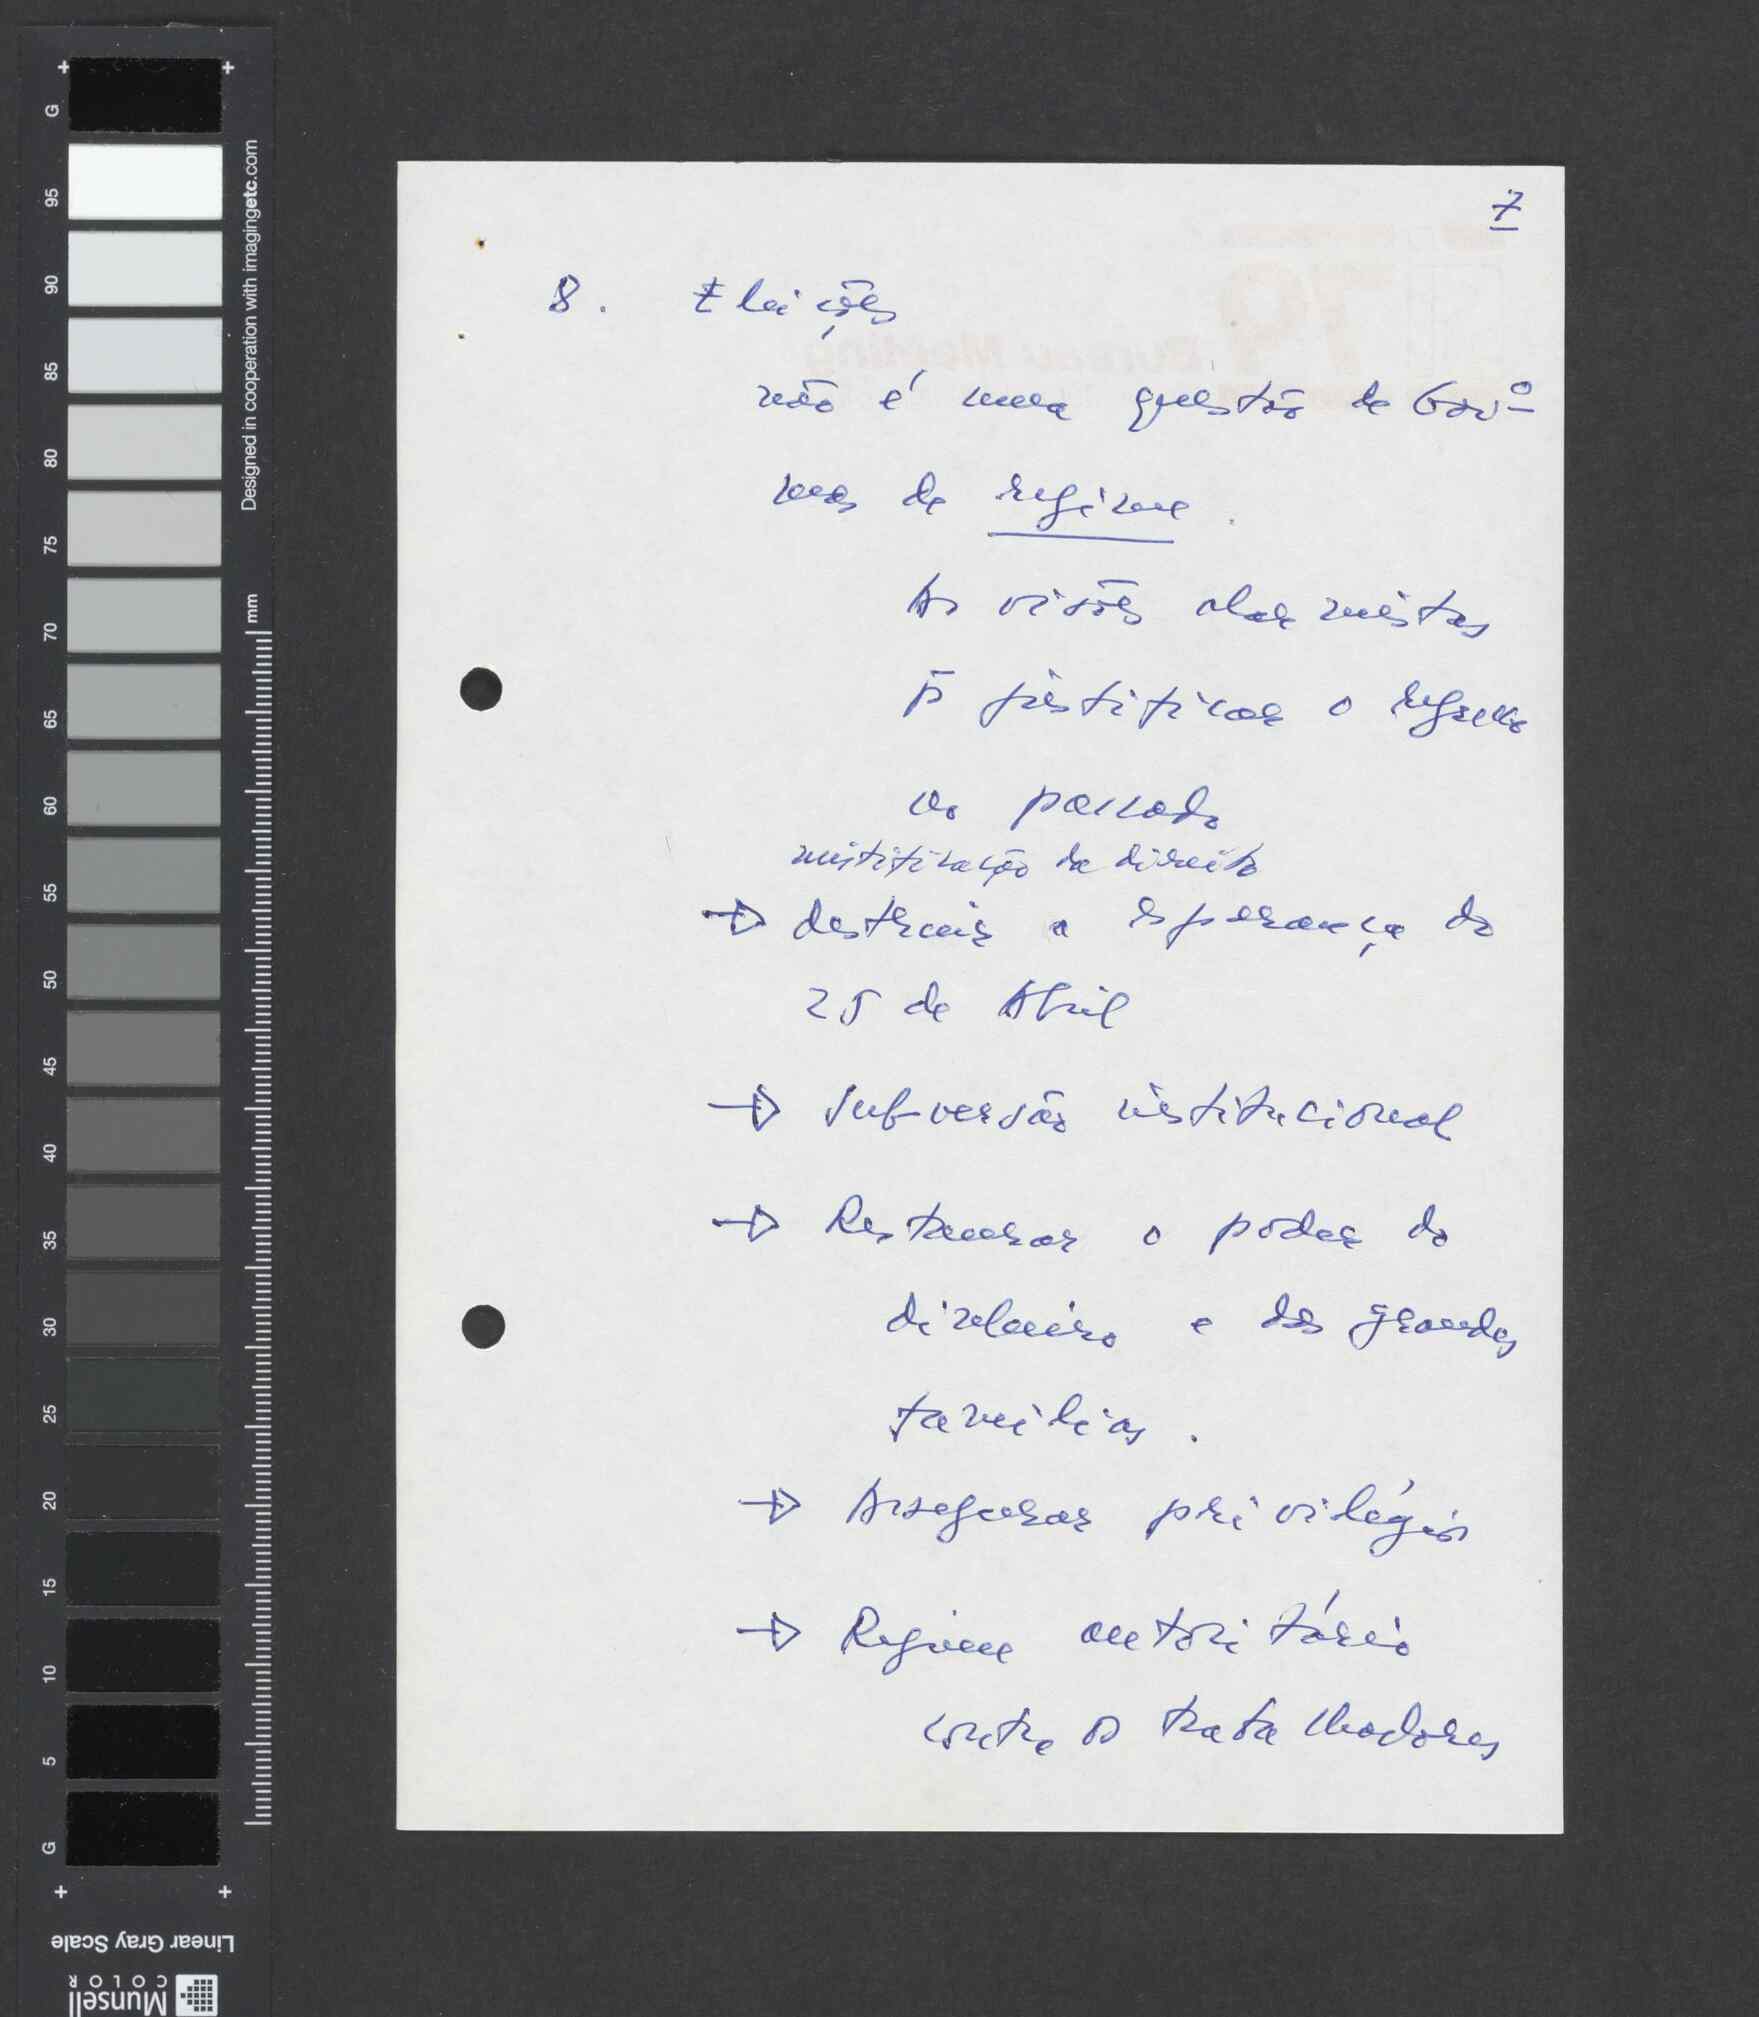 7
8. Eleições
não é uma questão de Govº
mas de regime.
As visões alarmistas
p̄ justificar o regresso
ao passado
mistificação da direita
→ destruir a esperança do
25 de Abril
→ Subversão institucional
→ Restaurar o poder do
dinheiro e das grandes
famílias.
→ Assegurar privilégios
→ Regime autoritário
contra os trabalhadores
G
95
90
85
80
75
70
65
60
55
50
45
40
35
30
25
20
15
10
5
G
Designed in cooperation with imagingetc.com
mm
Linear Gray Scale
Munsell
COLOR
79
Bureau Meeting